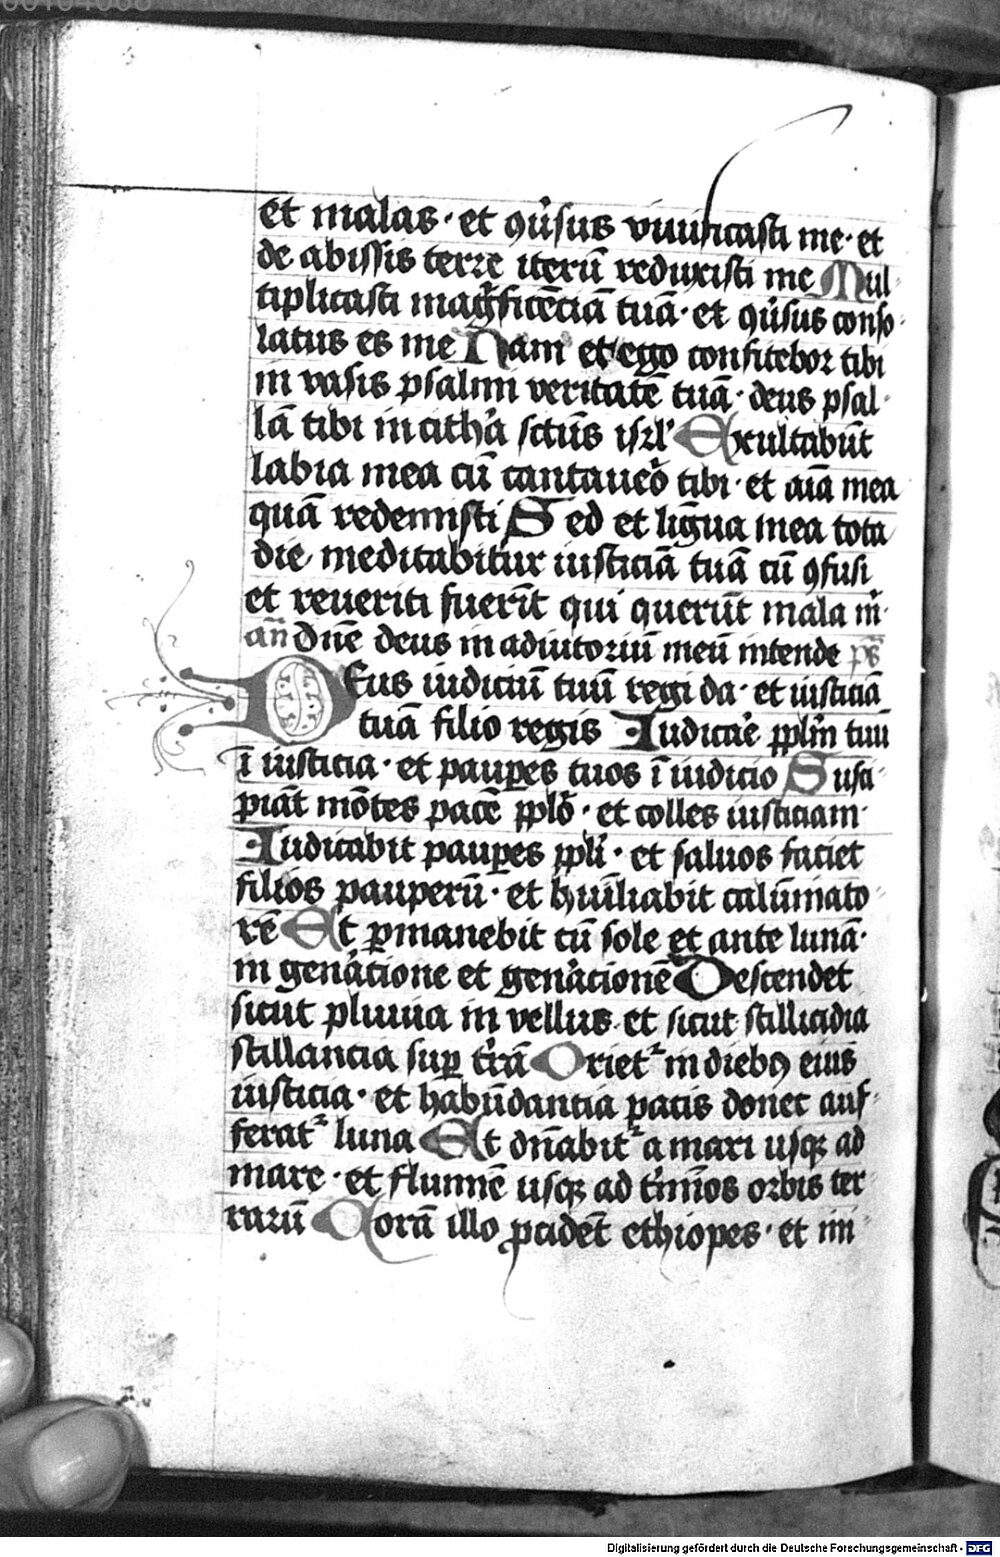 et malas · et ꝯu̓sus viuificasti me · et
de abissis terre iterū reduxisti me Mul
tiplicasti mag̓ficēciā tuā · et ꝯu̓sus conso
latus es me Nam et ego confitebor tibi
in vasis psalmi veritatē tuā · deus psal
lā tibi in cith̓a sctūs isrl' Exultabūt
labia mea cū cantauero̓ tibi · et aīa mea
quā redemisti Sed et ligua mea tota
die meditabitur iusticiā tuā cū ꝯfusi
et reueriti fuerīt qui querūt mala m̄
an̄ Dn̄e deus in adiutoriū meū intende ps̄
Deus iudiciū tuū regi da · et iusticiā
tuā filio regis Iudicar̓e ppl̓m tuū
ī iusticia · et paup̲es tuos ī iudicio Susci
piāt mōtes pacē ppl̓o · et colles iusticiam
Iudicabit paup̲es ppl̓i · et saluos faciet
filios pauperū · et hūiliabit calūniato
rē Et ꝑmanebit cū sole et ante lunā ·
in gen̓acione et gen̓acionē Descendet
sicut pluuia in vellus et sicut stillicidia
stillancia suꝑ tr̓ā Oriet᷑ in diebꝯ eius
iusticia · et habūdancia pacis donec auf
ferat᷑ luna Et dn̄abit᷑ a mari usqꝫ ad
mare · et a flumīe usqꝫ ad t̓mīos orbis ter
rarū Corā illo ꝓcidēt ethiopes · et ini
Digitalisierung gefördert durch die Deutsche Forschungsgemeinschaft - DFG